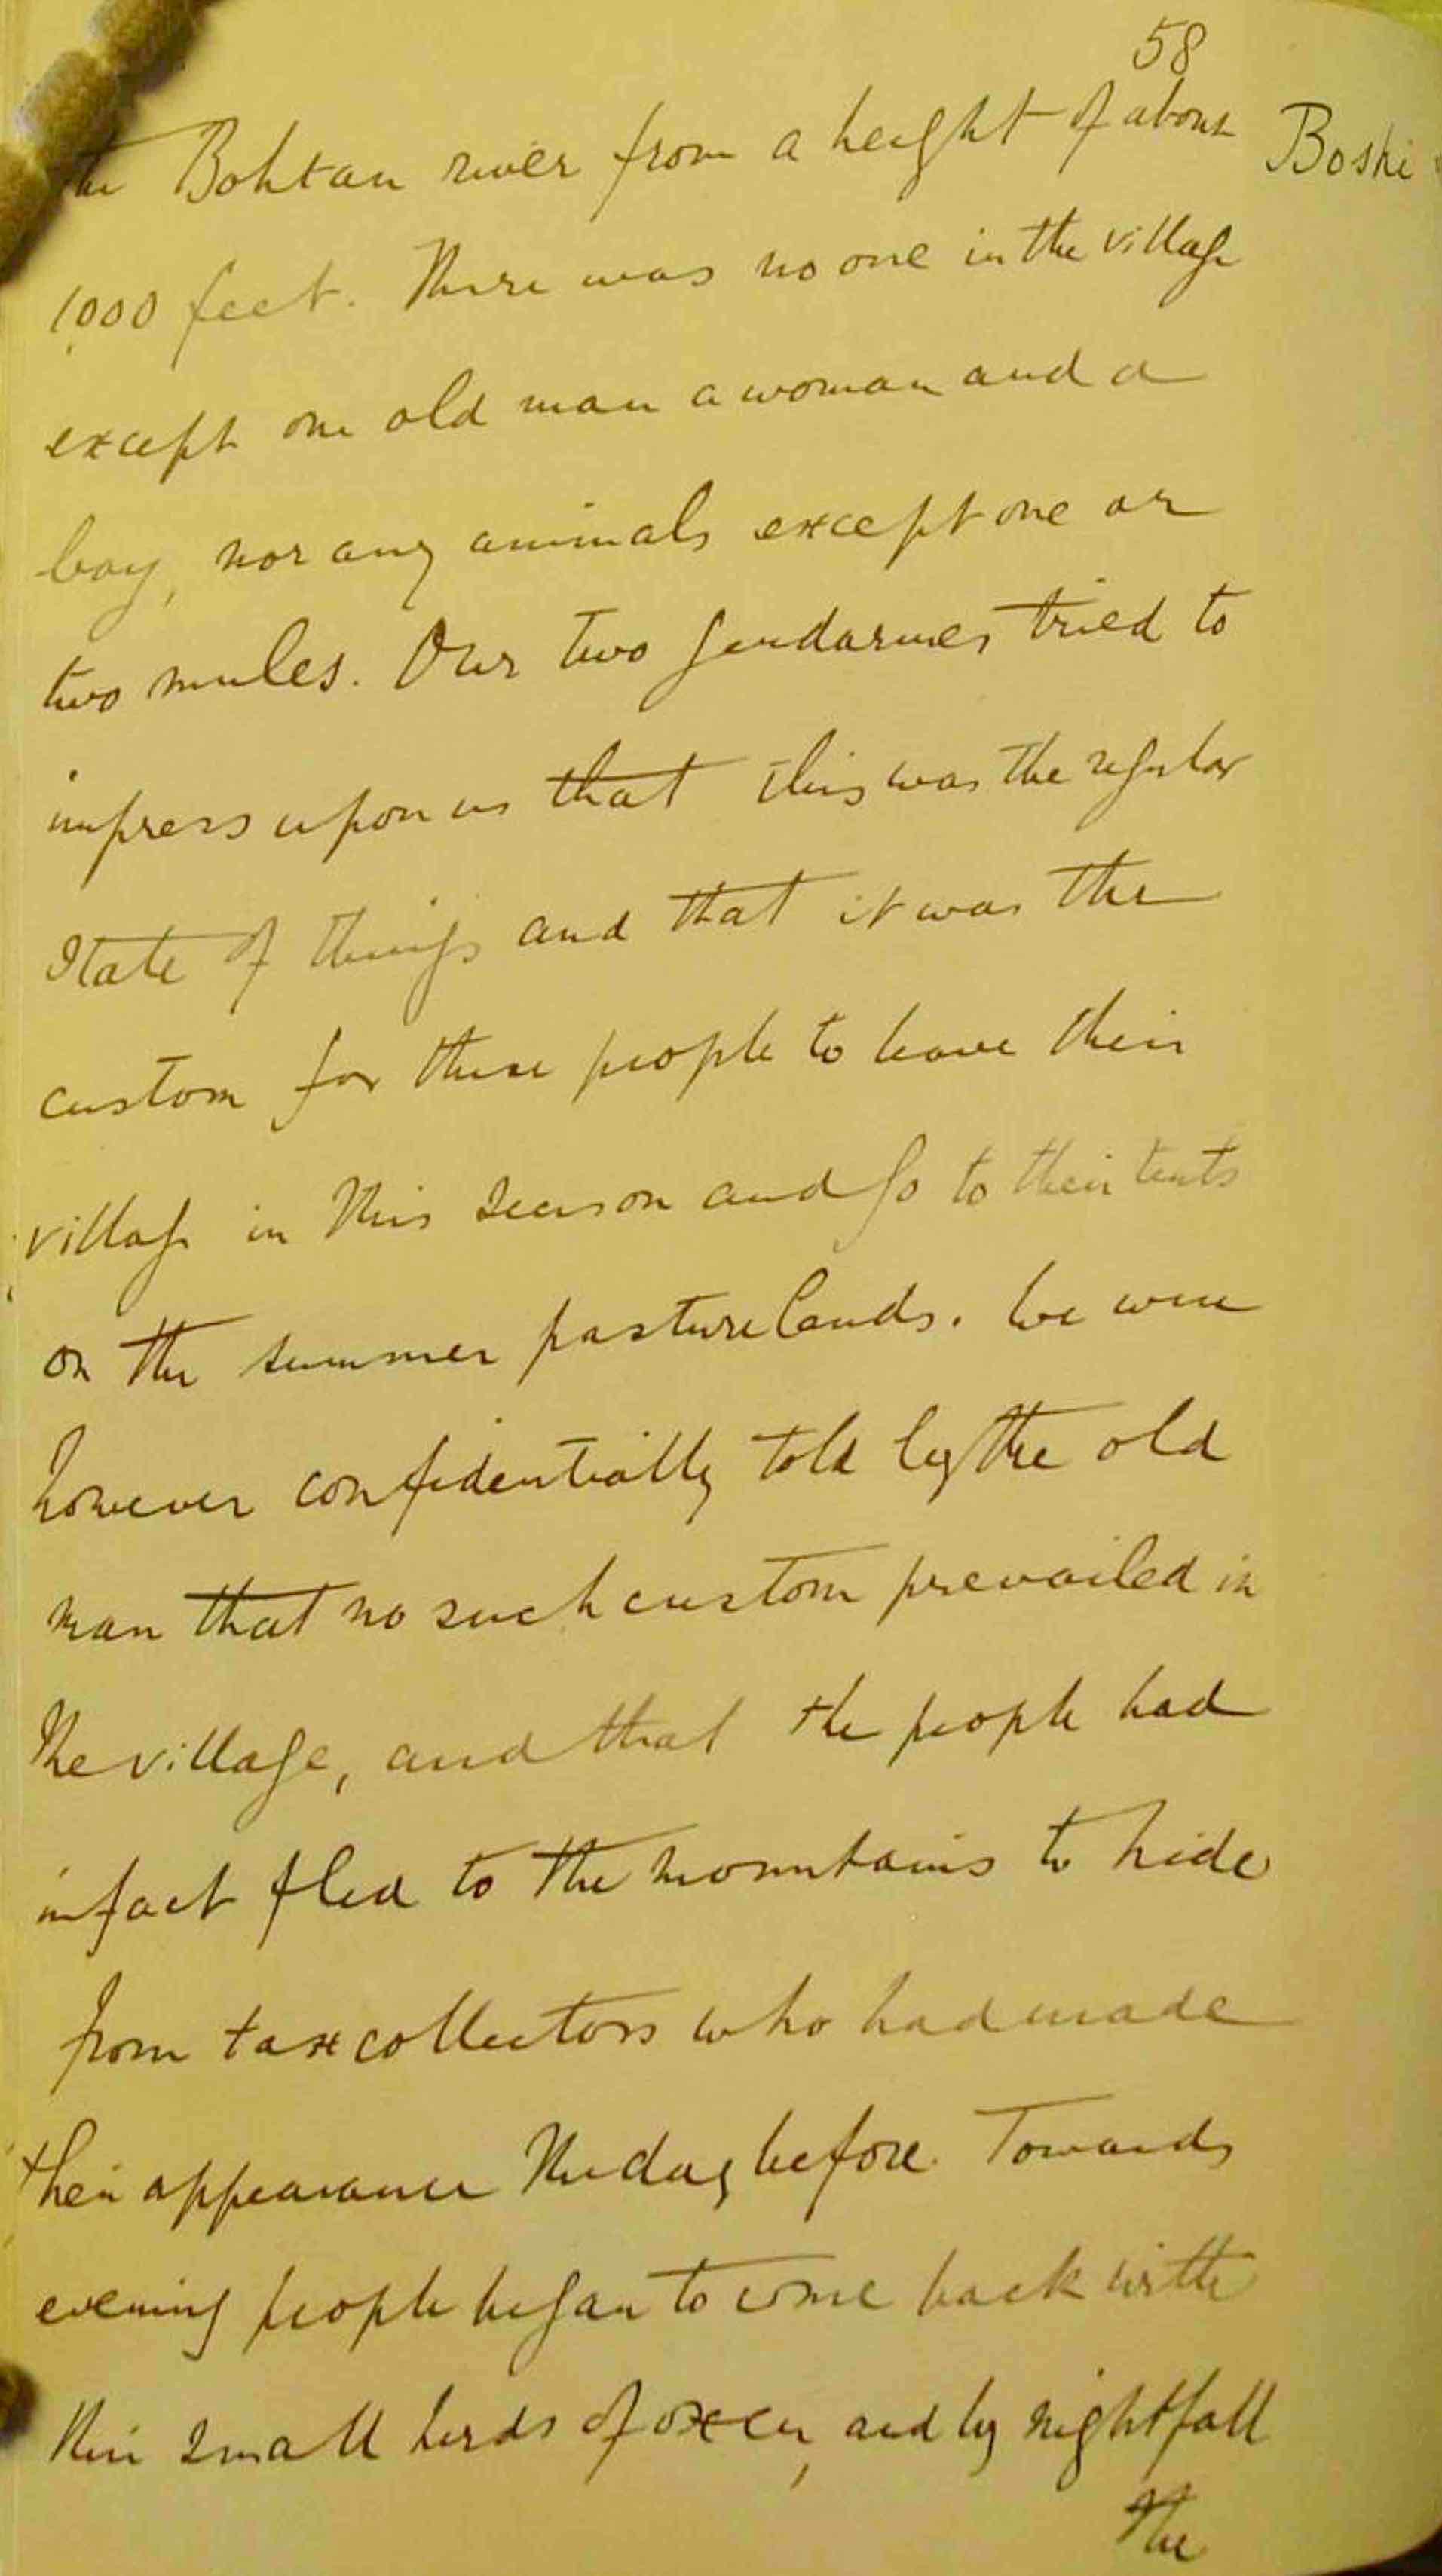 58
the Bohtan river from a height of about
Boshi
1,000 feet. There was no one in the village
except one old man a woman and a
boy, nor any animals except one or
two mules. Our two gendarmes tried to
impress upon us that this was the regular
state of things and that it was the
custom for these people to leave their
village in this season and go to their tents
on the summer pasture lands. We were
however confidentially told by the old
man that no such custom prevailed in
the village, and that the people had
in fact fled to the mountains to hide
from tax collectors who had made
their appearance the day before. Towards
evening people began to come back with
their small herds of oxen, and by nightfall
the